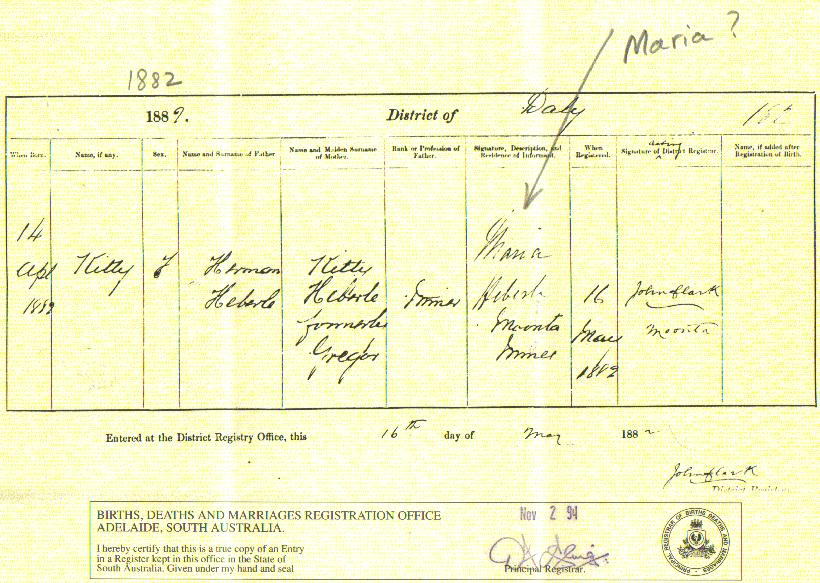 Maria?
1882
1882. District of Daly
When Born. Name, if any. Sex. Name and Surname of Father Name and Maiden Surname of Mother. Rank or Profession of Father. Signature, Description, and Residence of Informant. When Registered. Acting Signature of District Registrar. Name, if added after Registration of Birth.
14 Maria
Apl Kitty F Herman Kitty
1882 Heberle Heberle Miner Heberle 16 John Clark
formerly Moonta May Moonta
Gregor Mines 1882
Entered at the District Registry Office, this 16th day of May 1882
John Clark
District Registrar.
BIRTHS, DEATHS AND MARRIAGES REGISTRATION OFFICE
ADELAIDE, SOUTH AUSTRALIA.
Nov 2 94
I hereby certify that this is a true copy of an Entry
in a Register kept in this office in the State of
South Australia. Given under my hand and seal
Principal Registrar.
PRINCIPAL REGISTRAR OF BIRTHS DEATHS AND MARRIAGES